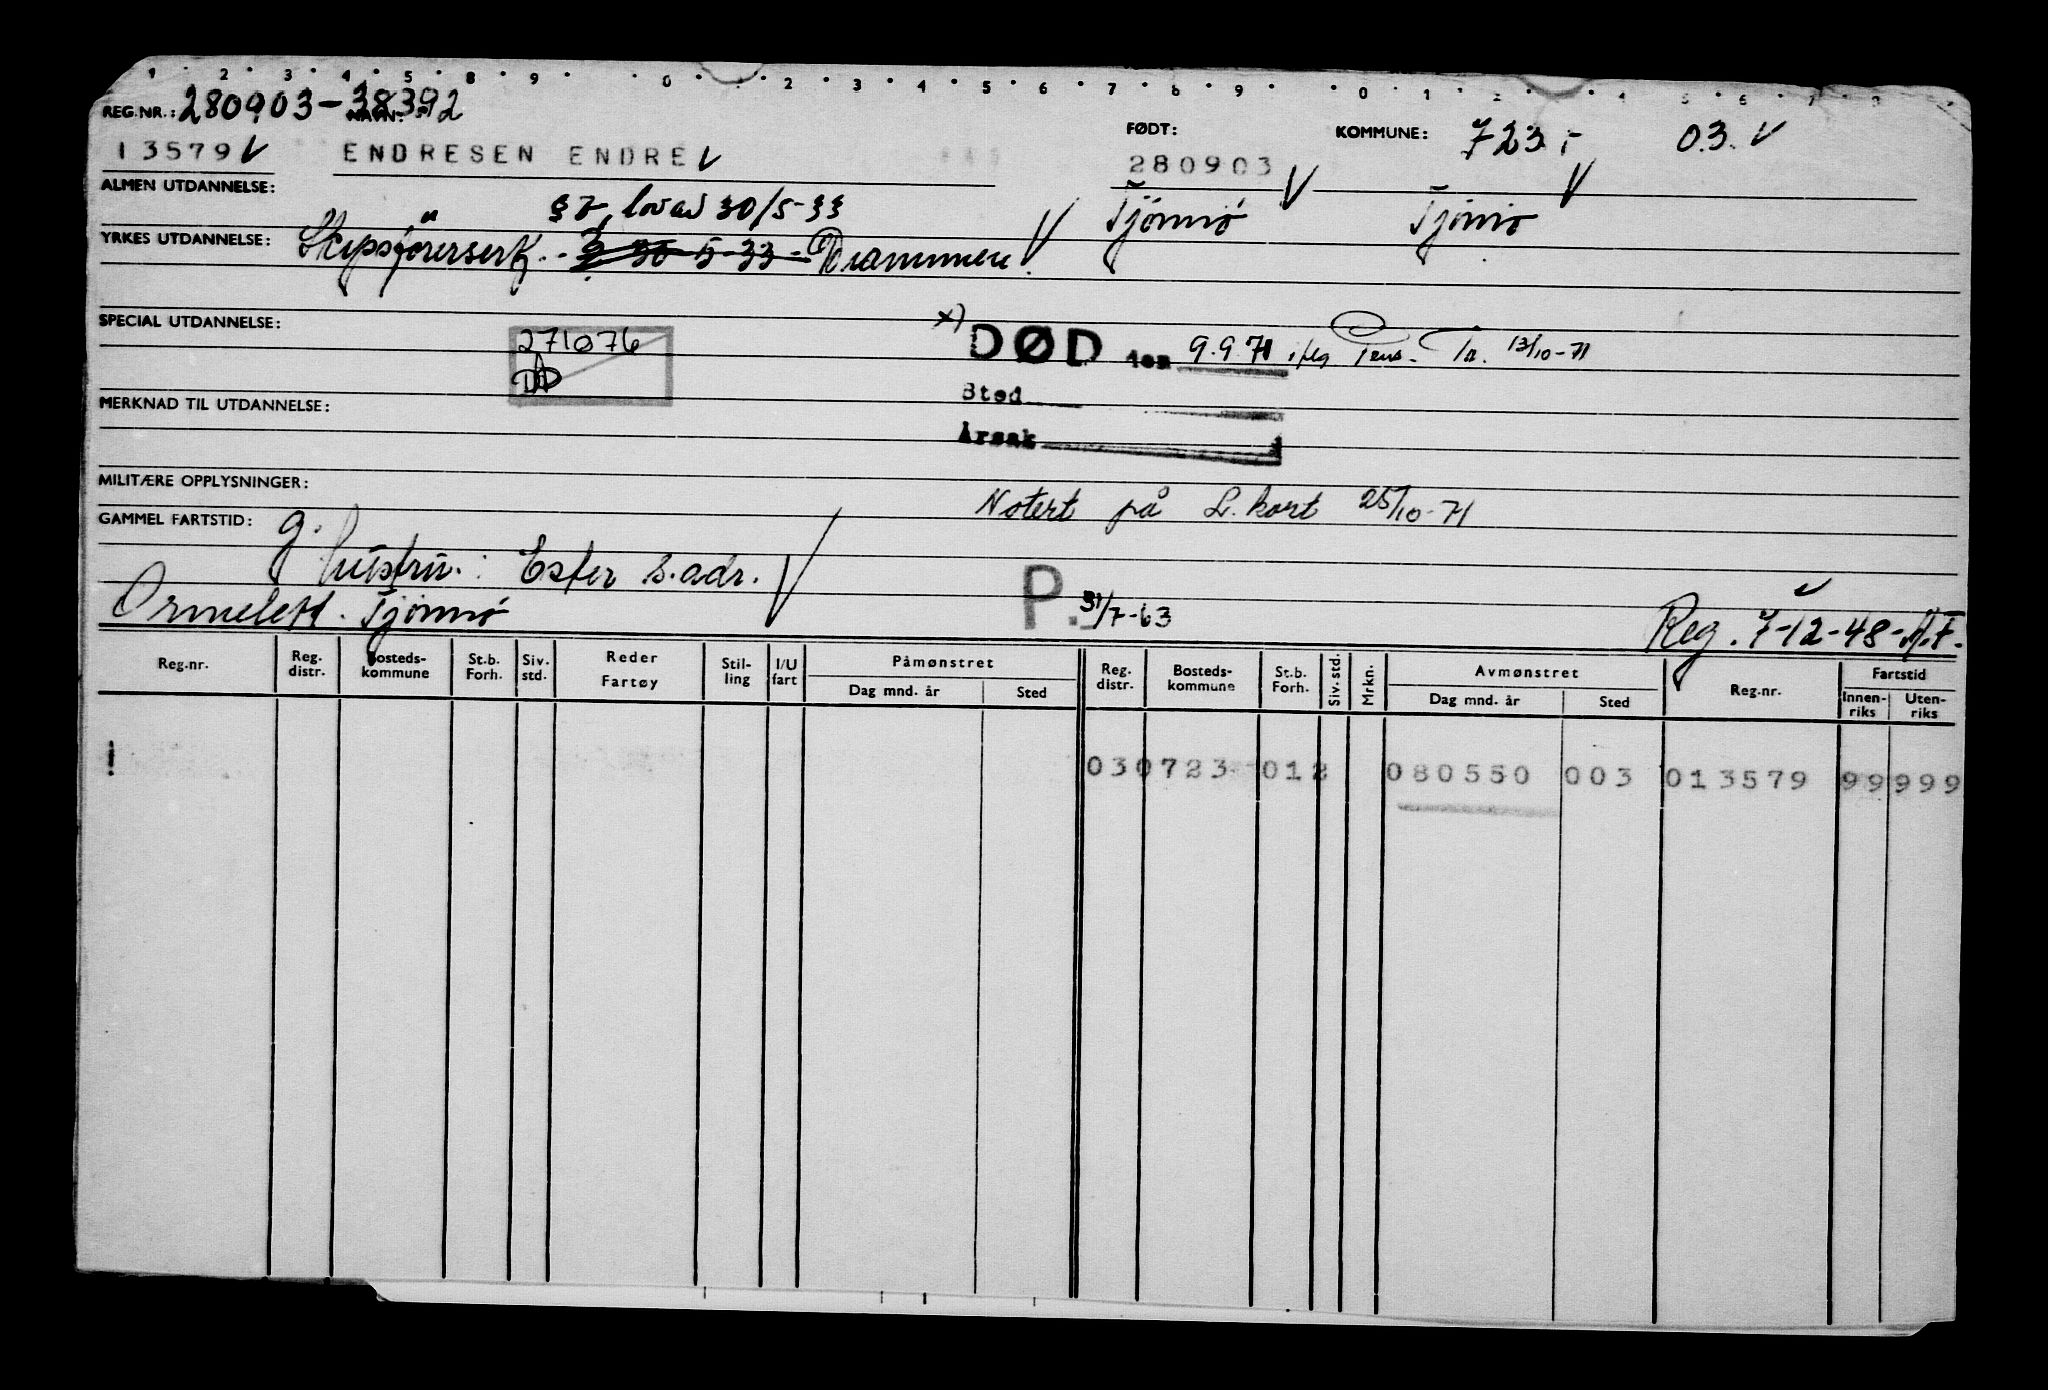 1 2 3 4 5 8 9 0 2 3 4 5 6 7 8 9 0 1 2 4 5 6 7 8
REG.NR.: 280903-38392 NAVN:
FØDT: KOMMUNE: 723.- 03. V
13579 V ENDRESEN ENDRE V 280903
ALMEN UTDANNELSE: § 7, lov av 30/5-33 Tjömö Tjömö
YRKES UTDANNELSE: Skipsförersert. - 30-5-33 - Drammen.
SPECIAL UTDANNELSE:
271076
x) DØD den 9.9.71 iflg Pens. Tr. 13/10-71
Sted
MERKNAD TIL UTDANNELSE:
Årsak
MILITÆRE OPPLYSNINGER:
Notert på L.kort 25/10-71
GAMMEL FARTSTID: g.
hustru: Ester s.adr. V
Ormelett. Tjömö P. 31/7-63 Reg. 7-12-48-A.F.
Reg.nr. Reg. distr. Bosteds-kommune St.b. Forh. Siv. std. Reder Fartøy Stil-ling I/U fart Påmønstret Dag mnd. år Sted Reg. distr. Bosteds-kommune St.b. Forh. Siv. std. Mrkn. Avmønstret Dag mnd. år Sted Reg.nr. Fartstid Innen-riks Uten-riks
! 030723 012 080550 003 013579 99999